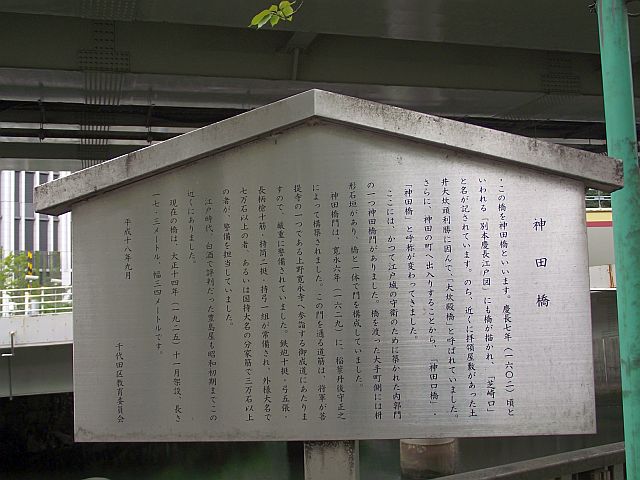 神田橋
この橋を神田橋といいます。慶長七年(一六〇二)頃と
いわれる『別本慶長江戸図』にも橋が描かれ、「芝崎口」
と名が記されています。のち、近くに拝領屋敷があった土
井大炊頭利勝に因んで、「大炊殿橋」と呼ばれていました。
さらに、神田の町へ出入りすることから、「神田口橋」・
「神田橋」と呼称が変わってきました。
ここには、かつて江戸城の守衛のために築かれた内郭門
の一つ神田橋門がありました。橋を渡った大手町側には枡
形石垣があり、橋と一体で門を構成していました。
神田橋門は、寛永六年(一六二九)に、稲葉丹後守正之
によって構築されました。この門を通る道筋は、将軍が菩
提寺の一つである上野寛永寺へ参詣する御成道にあたりま
すので、厳重に警備されていました。鉄炮十挺・弓五張・
長柄槍十筋・持筒二挺・持弓一組が常備され、外様大名で
七万石以上の者、あるいは国持大名の分家筋で三万石以上
の者が、警備を担当していました。
江戸時代、白酒で評判だった豊島屋も昭和初期までこの
近くにありました。
現在の橋は、大正十四年(一九二五)十一月架設、長さ
一七・三メートル、幅三四メートルです。
平成十八年九月
千代田区教育委員会